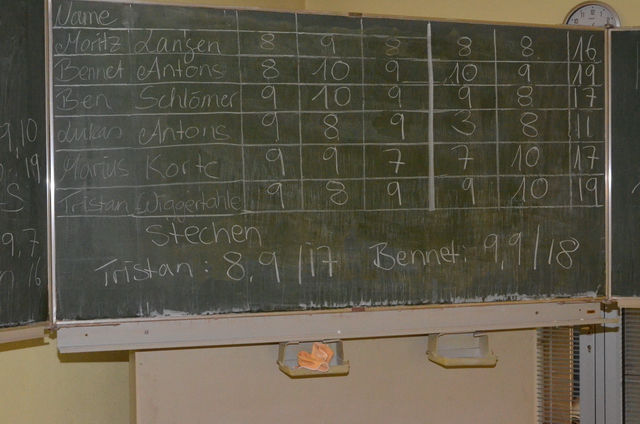 Name
Moritz Lanzen 8 9 8 8 8 16
Bennet Antons 8 10 9 10 9 19
Ben Schlömer 9 10 9 9 8 17
Lukas Antons 9 8 9 3 8 11
Marius Korte 9 9 7 7 10 17
Tristan Wiggertahle 9 8 9 9 10 19
Stechen
Tristan: 8,9/17 Bennet: 9,9/18
9,10
19
S
9,7
16